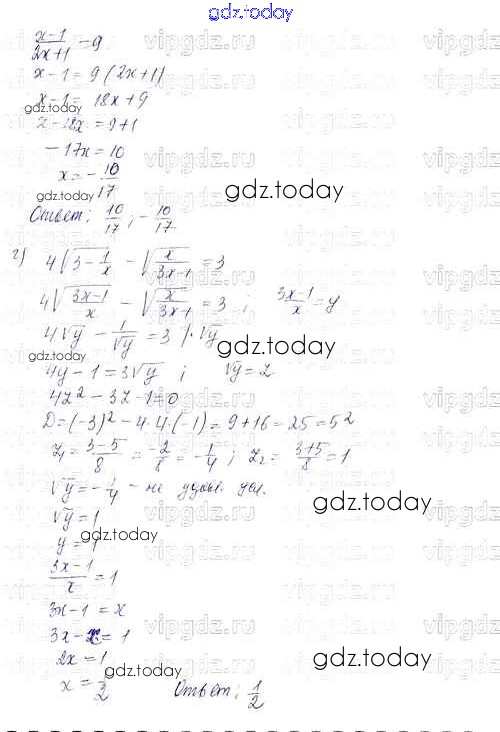 gdz.today
\frac{x-1}{2x+1} = 9
x-1 = 9(2x+1)
x-1 = 18x+9
gdz.today
x-18x = 9+1
-17x = 10
x = -\frac{10}{17}
gdz.today
gdz.today
Ответ: \frac{10}{17}; -\frac{10}{17}
г) 4\sqrt{3-\frac{1}{x}} - \sqrt{\frac{x}{3x-1}} = 3
4\sqrt{\frac{3x-1}{x}} - \sqrt{\frac{x}{3x-1}} = 3 ; \frac{3x-1}{x} = y
4\sqrt{y} - \frac{1}{\sqrt{y}} = 3 | \cdot \sqrt{y}
gdz.today
gdz.today
4y - 1 = 3\sqrt{y} ; \sqrt{y} = z
4z² - 3z - 1 = 0
D = (-3)² - 4·4·(-1) = 9+16 = 25 = 5²
z₁ = \frac{3-5}{8} = \frac{-2}{8} = -\frac{1}{4} ; z₂ = \frac{3+5}{8} = 1
\sqrt{y} = -\frac{1}{4} - не удовл. усл.
gdz.today
\sqrt{y} = 1
gdz.today
y = 1
\frac{3x-1}{x} = 1
3x-1 = x
3x-x = 1
2x = 1
gdz.today
gdz.today
x = \frac{1}{2} Ответ: \frac{1}{2}